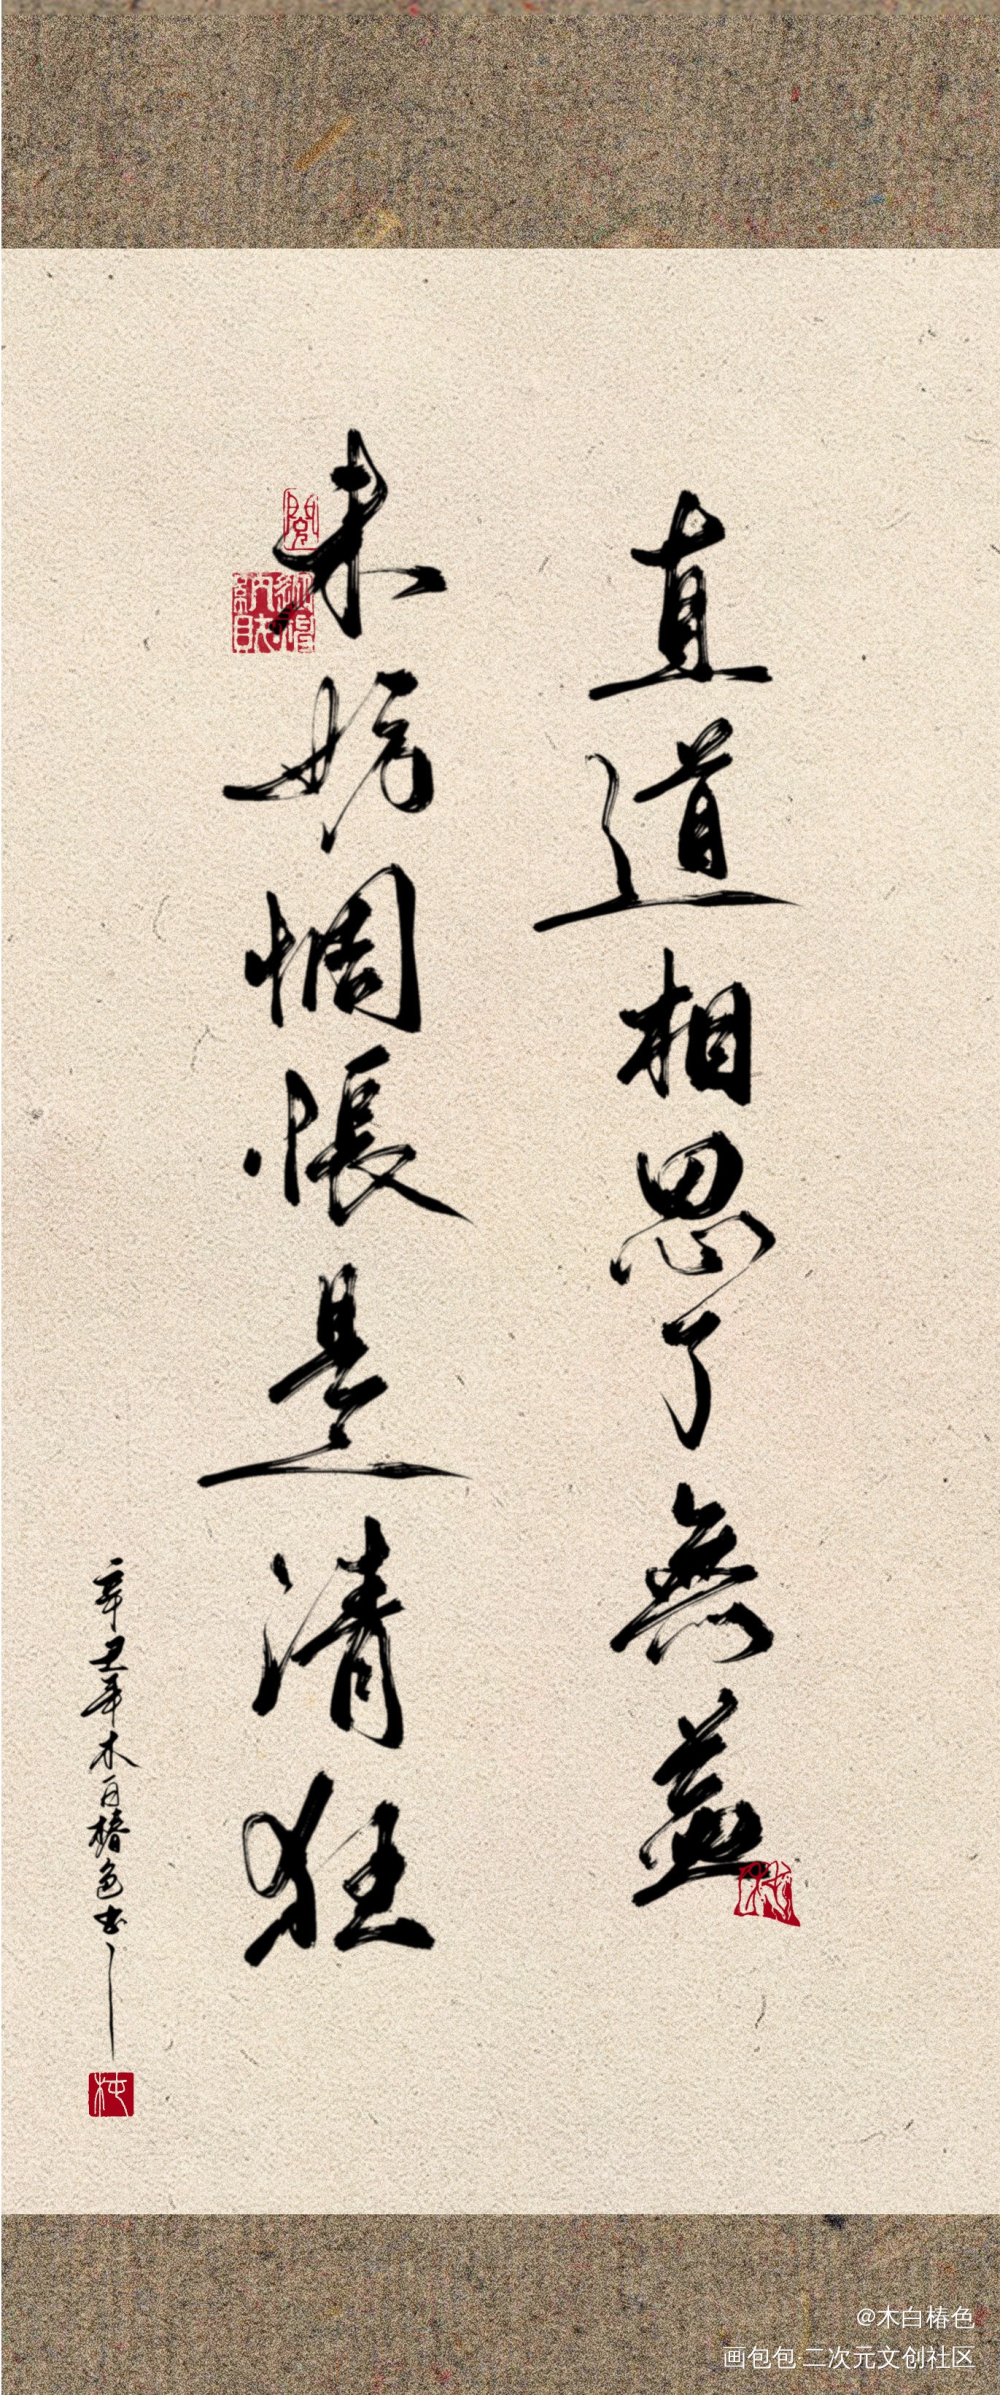 直道相思了無益
未妨惆悵是清狂
辛丑年木白椿色书
@木白椿色
画包包·二次元文创社区